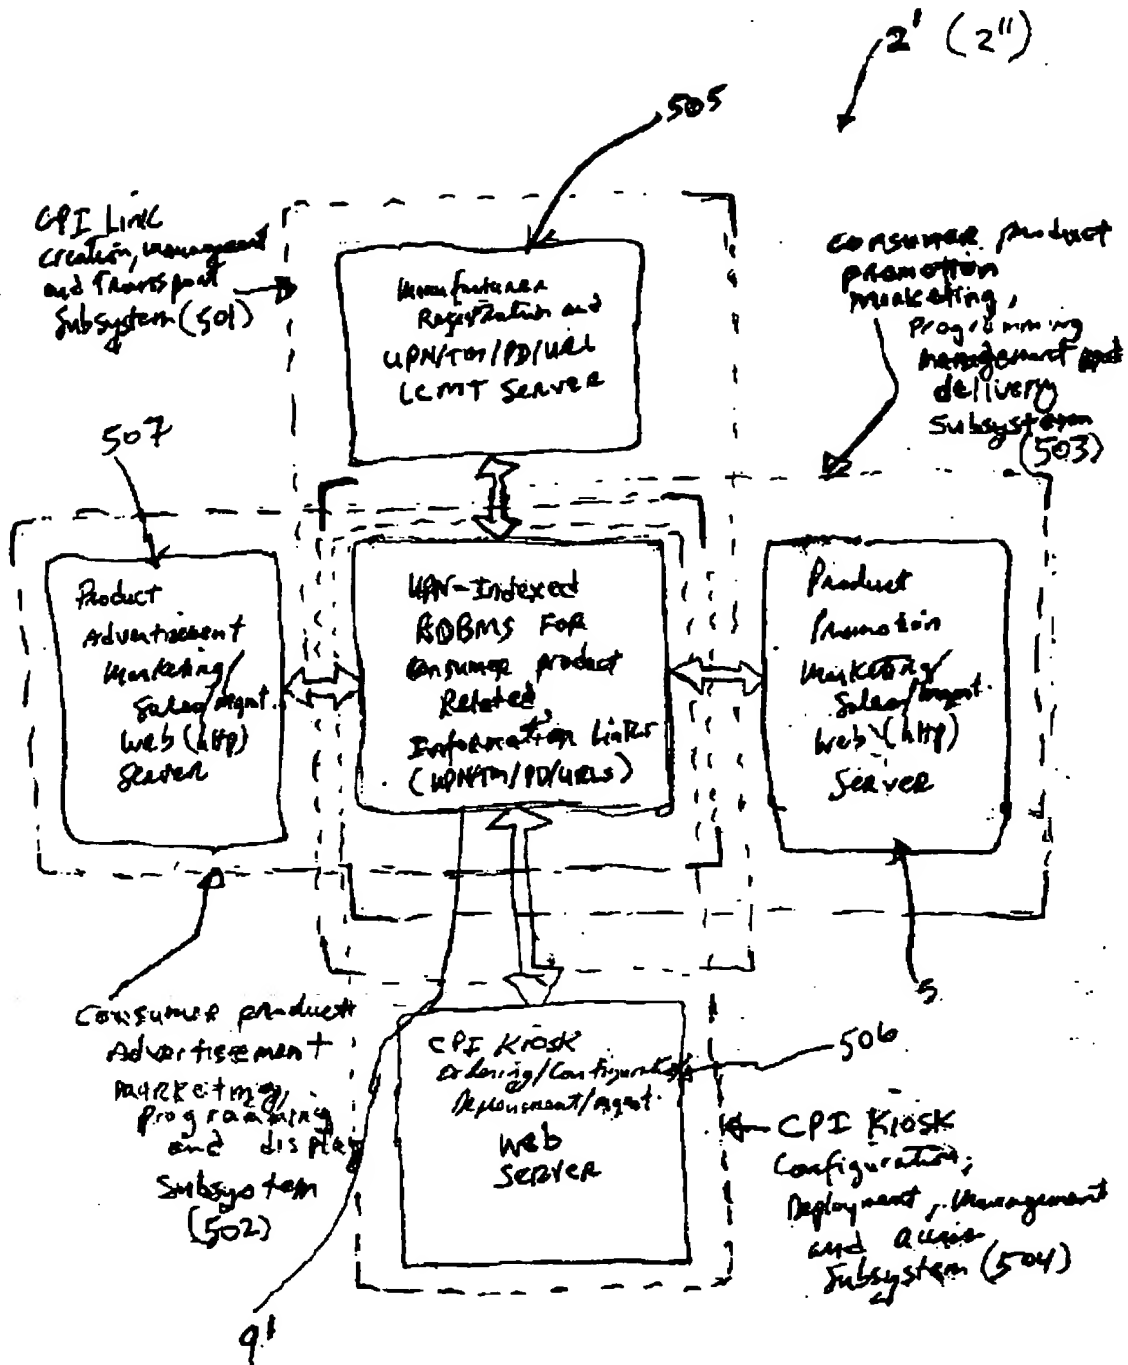 2' (2")
505
CPI Link
creation, management
and Transport
Subsystem (501)
Manufacturer
Registration and
UPN/TM/PD/URL
LCMT Server
Consumer product
promotion
marketing,
Programming
management and
delivery
Subsystem
(503)
507
Product
Advertisement
Marketing/
Sales/mgmt.
Web (http)
Server
UPN-Indexed
RDBMS FOR
Consumer product
Related
Information Links
(UPN/TM/PD/URLs)
Product
Promotion
Marketing/
Sales/mgmt.
Web (http)
Server
5
Consumer product
Advertisement
marketing,
programming
and display
Subsystem
(502)
CPI Kiosk
Ordering/Configuration
Deployment/mgmt.
Web
Server
506
CPI Kiosk
Configuration,
Deployment, Management
and
Subsystem (504)
9'